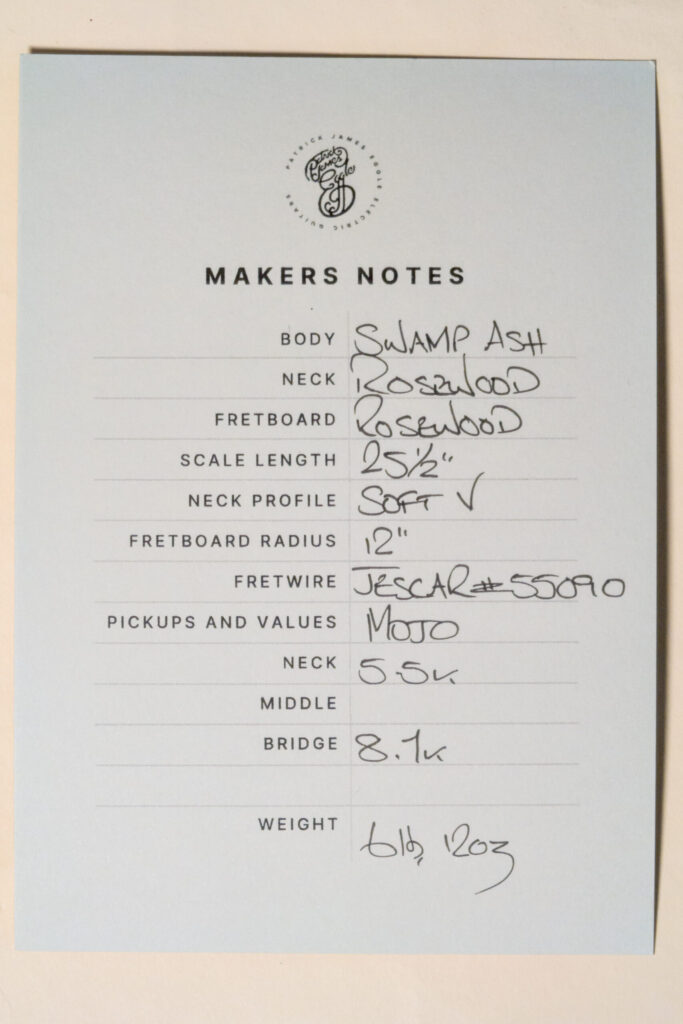 PATRICK JAMES EGGLE ELECTRIC GUITARS
Patrick
James
Eggle
MAKERS NOTES
BODY SWAMP ASH
NECK ROSEWOOD
FRETBOARD ROSEWOOD
SCALE LENGTH 25 1/2"
NECK PROFILE SOFT V
FRETBOARD RADIUS 12"
FRETWIRE JESCAR #55090
PICKUPS AND VALUES MOJO
NECK 5.5k
MIDDLE
BRIDGE 8.1k
WEIGHT 6lb, 12oz